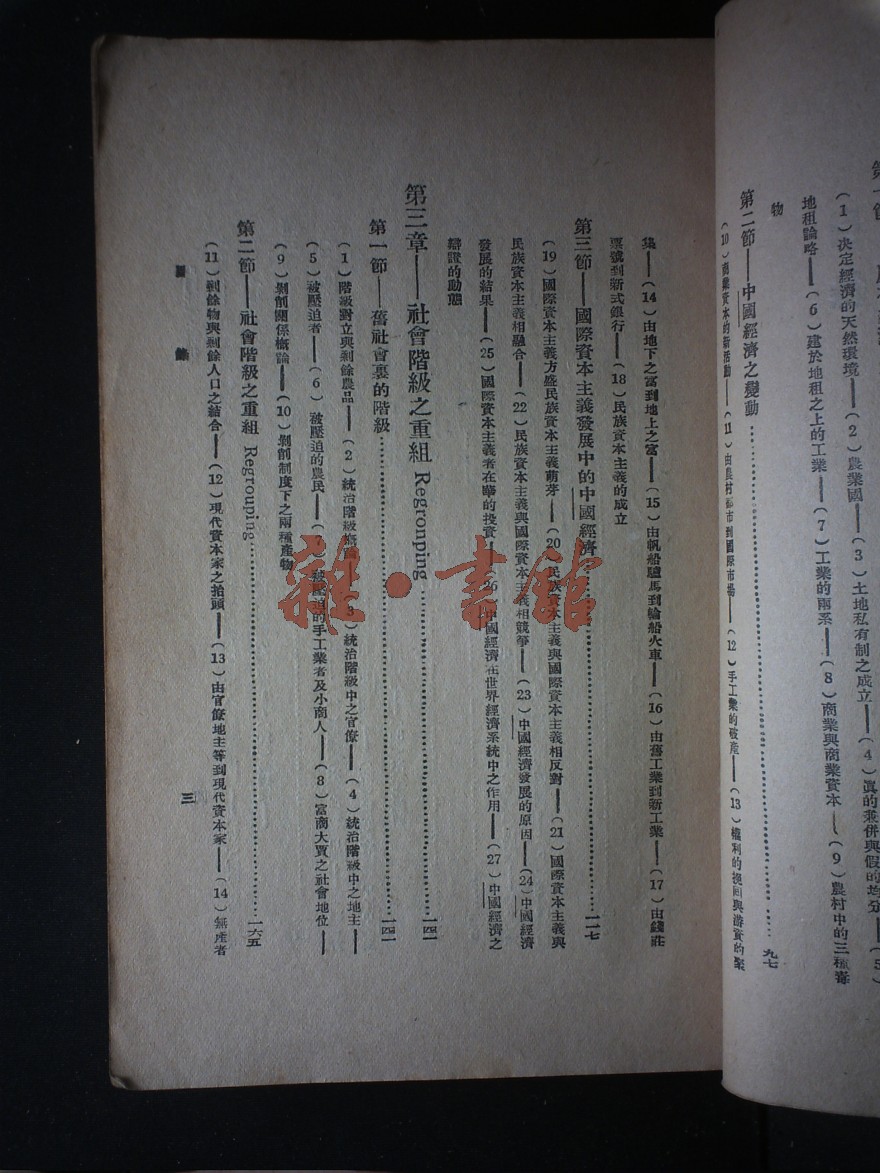 (1)決定經濟的天然環境——(2)農業國——(3)土地私有制之成立——(4)眞的兼併與假的均分——(5)
地租論略——(6)建於地租之上的工業——(7)工業的兩系——(8)商業與商業資本——(9)農村中的三種毒
物
第二節——中國經濟之變動……九七
(10)商業資本的新活動——(11)由農村都市到國際市場——(12)手工業的破產——(13)權利的挽回與游資的聚
集——(14)由地下之富到地上之富——(15)由帆船驢馬到輪船火車——(16)由舊工業到新工業——(17)由錢莊
票號到新式銀行——(18)民族資本主義的成立
第三節——國際資本主義發展中的中國經濟……一一七
(19)國際資本主義方盛民族資本主義萌芽——(20)民族資本主義與國際資本主義相反對——(21)國際資本主義與
民族資本主義相融合——(22)民族資本主義與國際資本主義相競爭——(23)中國經濟發展的原因——(24)中國經濟
發展的結果——(25)國際資本主義者在華的投資——(26)中國經濟在世界經濟系統中之作用——(27)中國經濟之
辯證的動態
第三章——社會階級之重組 Regrouping……一四一
第一節——舊社會裏的階級……一四一
(1)階級對立與剩餘農品——(2)統治階級概論——(3)統治階級中之官僚——(4)統治階級中之地主——
(5)被壓迫者——(6)被壓迫的農民——(7)被壓迫的手工業者及小商人——(8)富商大賈之社會地位——
(9)剝削關係概論——(10)剝削制度下之兩種產物
第二節——社會階級之重組 Regrouping……一六五
(11)剩餘物與剩餘人口之結合——(12)現代資本家之抬頭——(13)由官僚地主等到現代資本家——(14)無產者
目 錄
三
雜·書館